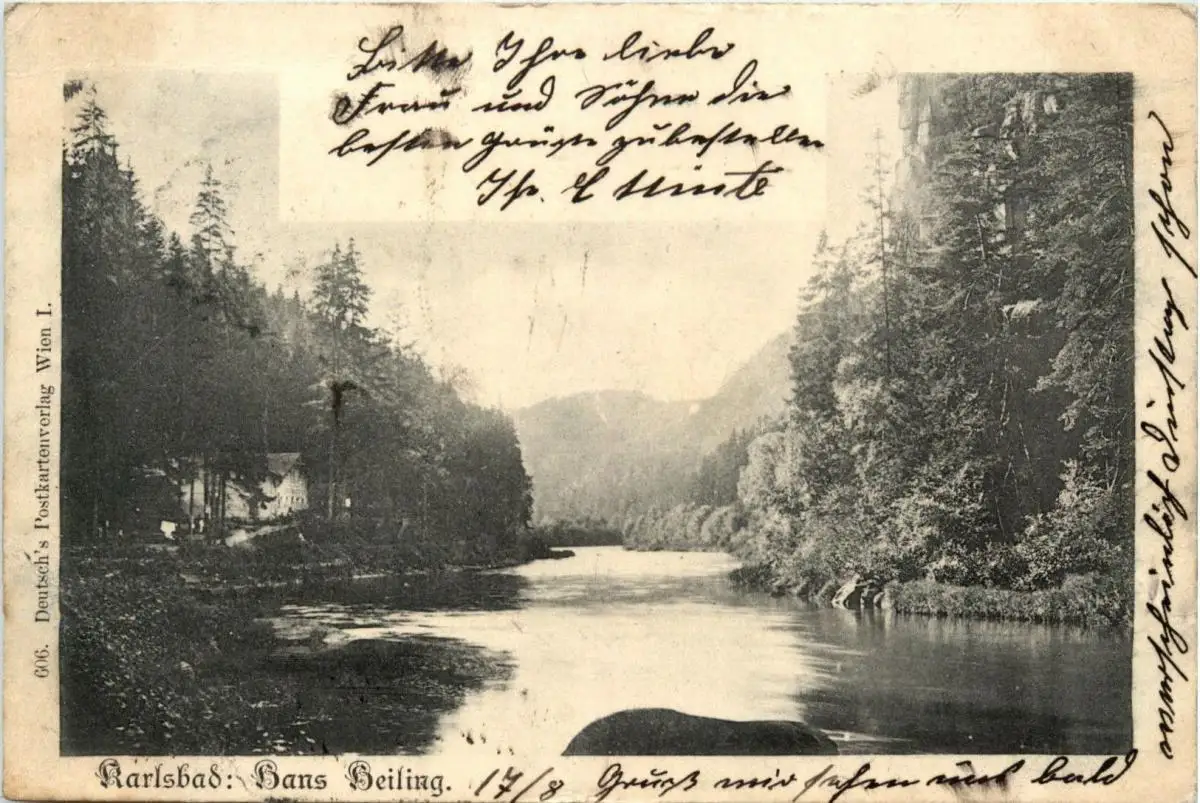 Bitte Ihre liebe
Frau und Söhne die
besten Grüße zubestellen
Ihr. E
606. Deutsch's Postkartenverlag Wien I.
Karlsbad: Hans Heiling.
17/8 Gruß wir sehen uns bald
wahrscheinlich Dienstag schon